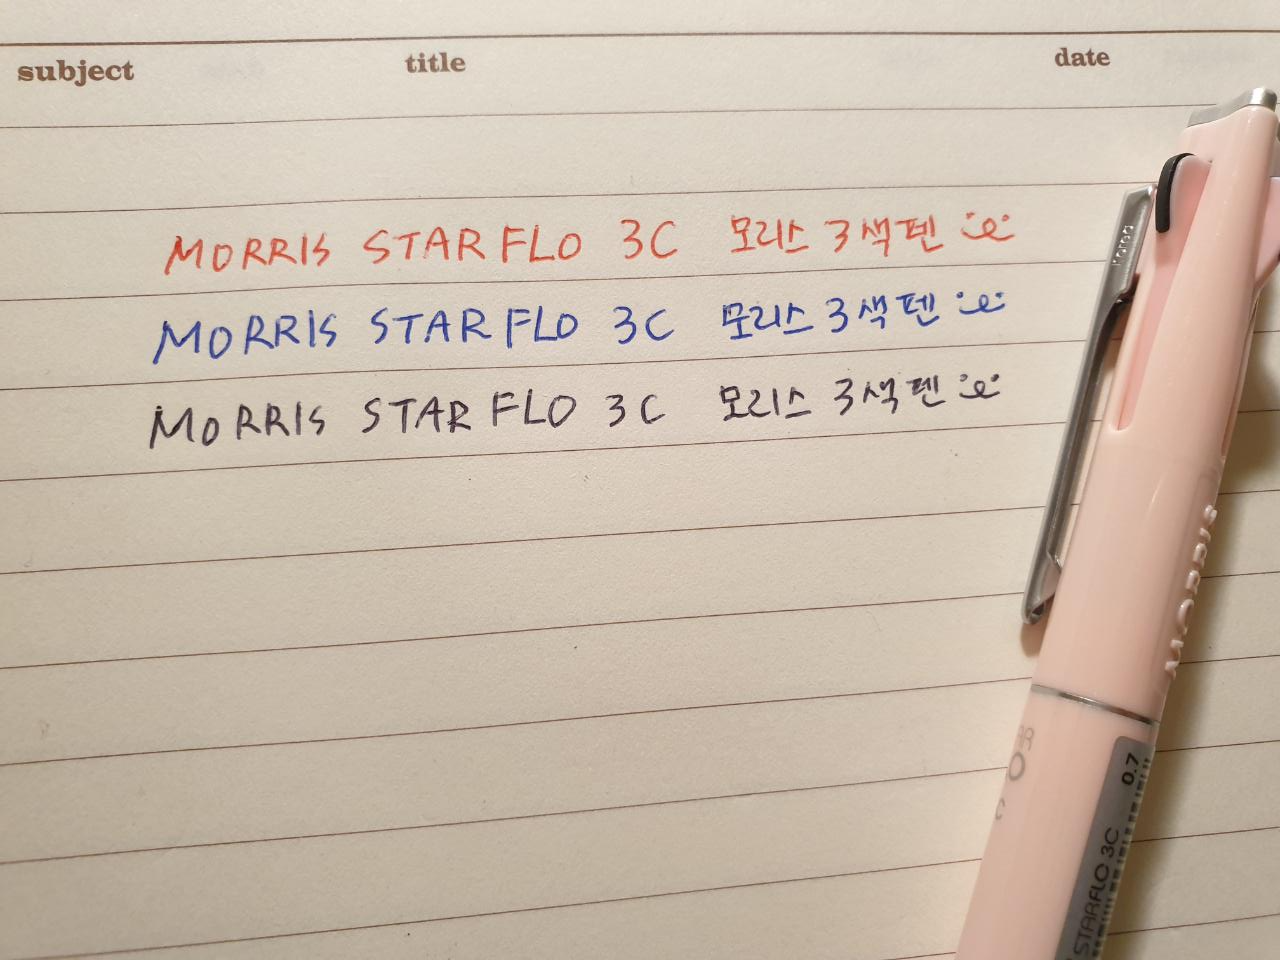 subject title date
MORRIS STAR FLO 3C 모리스 3색펜
MORRIS STAR FLO 3C 모리스 3색펜
MORRIS STAR FLO 3C 모리스 3색펜
Korea
MORRIS
0.7
STARFLO 3C